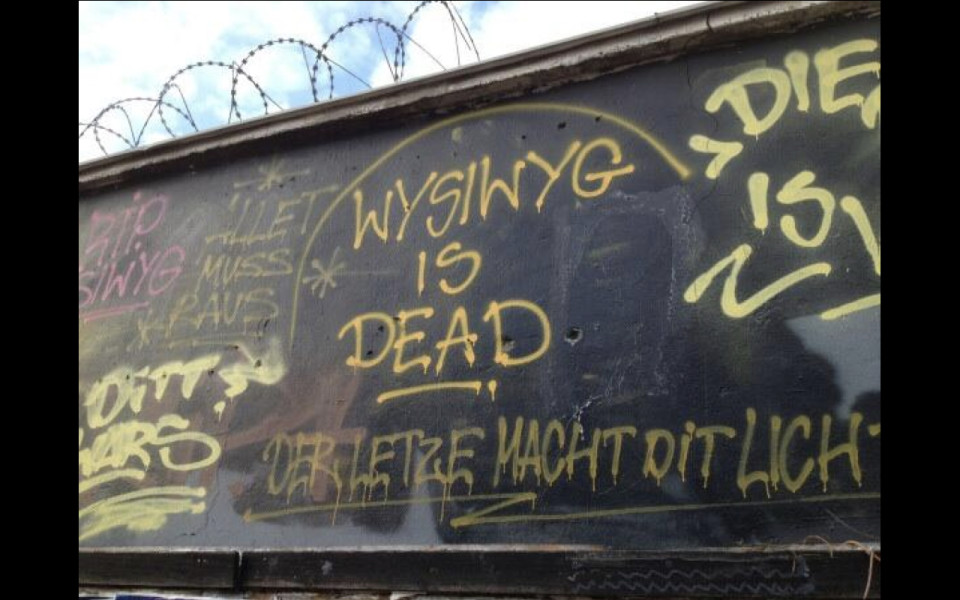 RIP
SIWYG
ALLET
MUSS
RAUS
DITT
WARS
WYSIWYG
IS
DEAD
DER LETZE MACHT DIT LICHT
DIE
IS